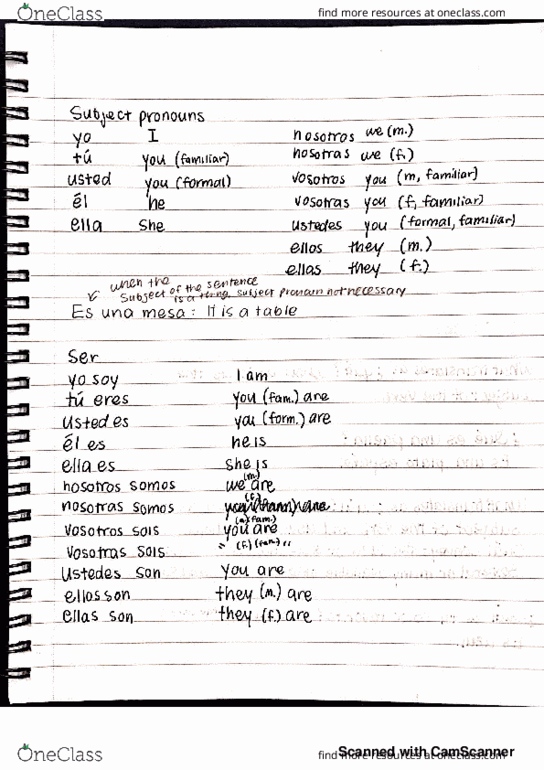 OneClass find more resources at oneclass.com
Subject pronouns
yo I nosotros we (m.)
tú you (familiar) nosotras we (f.)
usted you (formal) vosotros you (m, familiar)
él he vosotras you (f, familiar)
ella she ustedes you (formal, familiar)
ellos they (m.)
ellas they (f.)
when the
subject of the sentence
is a thing, subject pronoun not necessary
Es una mesa: It is a table
Ser
yo soy I am
tú eres you (fam.) are
usted es you (form.) are
él es he is
ella es she is
(m)
nosotros somos we are
(f.)
nosotras somos
(m) (fam.)
vosotros sois you are
vosotras sois " (f.) (fam.) "
Ustedes son you are
ellos son they (m.) are
ellas son they (f.) are
Scanned with CamScanner
OneClass find more resources at oneclass.com